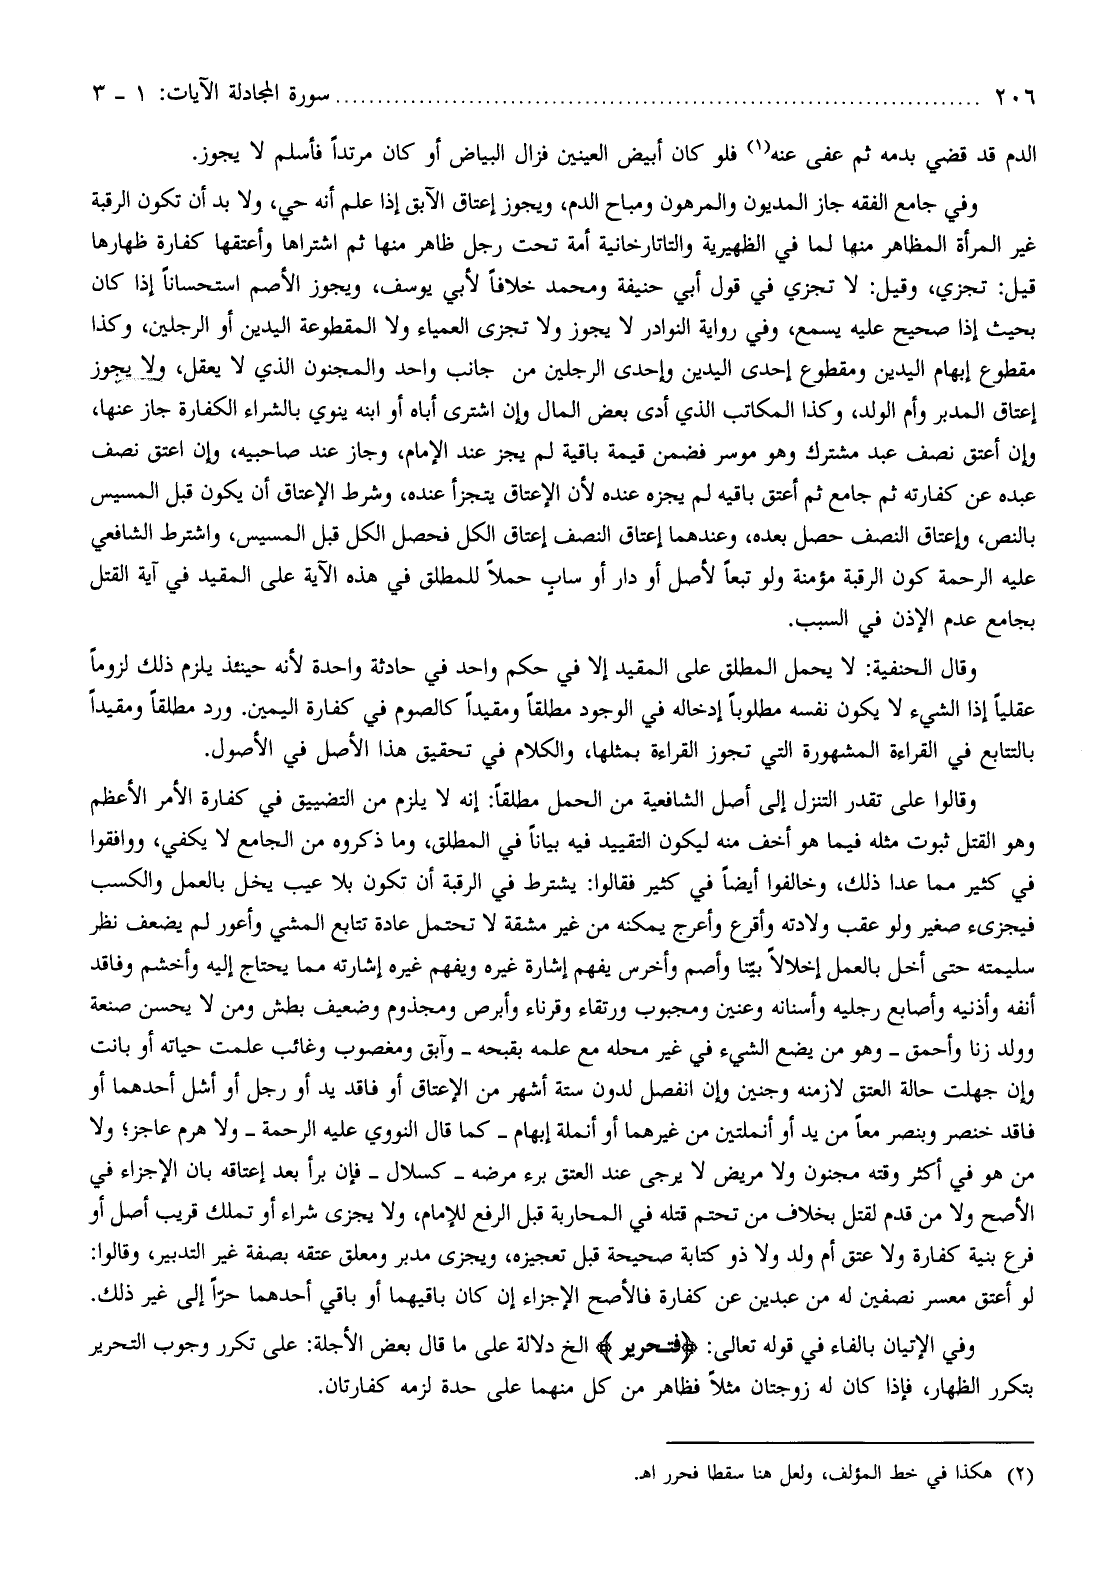 ٢٠٦ ........................................................................ سورة المجادلة الآيات: ١ ـ ٣
الدم قد قضي بدمه ثم عفى عنه(١) فلو كان أبيض العينين فزال البياض أو كان مرتداً فأسلم لا يجوز.
وفي جامع الفقه جاز المديون والمرهون ومباح الدم، ويجوز إعتاق الآبق إذا علم أنه حي، ولا بد أن تكون الرقبة
غير المرأة المظاهر منها لما في الظهيرية والتاتارخانية أمة تحت رجل ظاهر منها ثم اشتراها وأعتقها كفارة ظهارها
قيل: تجزي، وقيل: لا تجزي في قول أبي حنيفة ومحمد خلافاً لأبي يوسف، ويجوز الأصم استحساناً إذا كان
بحيث إذا صحيح عليه يسمع، وفي رواية النوادر لا يجوز ولا تجزى العمياء ولا المقطوعة اليدين أو الرجلين، وكذا
مقطوع إبهام اليدين ومقطوع إحدى اليدين وإحدى الرجلين من جانب واحد والمجنون الذي لا يعقل، ولا يجوز
إعتاق المدبر وأم الولد، وكذا المكاتب الذي أدى بعض المال وإن اشترى أباه أو ابنه ينوي بالشراء الكفارة جاز عنها،
وإن أعتق نصف عبد مشترك وهو موسر فضمن قيمة باقية لم يجز عند الإمام، وجاز عند صاحبيه، وإن اعتق نصف
عبده عن كفارته ثم جامع ثم أعتق باقيه لم يجزه عنده لأن الإعتاق يتجزأ عنده، وشرط الإعتاق أن يكون قبل المسيس
بالنص، وإعتاق النصف حصل بعده، وعندهما إعتاق النصف إعتاق الكل فحصل الكل قبل المسيس، واشترط الشافعي
عليه الرحمة كون الرقبة مؤمنة ولو تبعاً لأصل أو دار أو سابٍ حملاً للمطلق في هذه الآية على المقيد في آية القتل
بجامع عدم الإذن في السبب.
وقال الحنفية: لا يحمل المطلق على المقيد إلا في حكم واحد في حادثة واحدة لأنه حينئذ يلزم ذلك لزوماً
عقلياً إذا الشيء لا يكون نفسه مطلوباً إدخاله في الوجود مطلقاً ومقيداً كالصوم في كفارة اليمين. ورد مطلقاً ومقيداً
بالتتابع في القراءة المشهورة التي تجوز القراءة بمثلها، والكلام في تحقيق هذا الأصل في الأصول.
وقالوا على تقدر التنزل إلى أصل الشافعية من الحمل مطلقاً: إنه لا يلزم من التضييق في كفارة الأمر الأعظم
وهو القتل ثبوت مثله فيما هو أخف منه ليكون التقييد فيه بياناً في المطلق، وما ذكروه من الجامع لا يكفي، ووافقوا
في كثير مما عدا ذلك، وخالفوا أيضاً في كثير فقالوا: يشترط في الرقبة أن تكون بلا عيب يخل بالعمل والكسب
فيجزىء صغير ولو عقب ولادته وأقرع وأعرج يمكنه من غير مشقة لا تحتمل عادة تتابع المشي وأعور لم يضعف نظر
سليمته حتى أخل بالعمل إخلالاً بيّنا وأصم وأخرس يفهم إشارة غيره ويفهم غيره إشارته مما يحتاج إليه وأخشم وفاقد
أنفه وأذنيه وأصابع رجليه وأسنانه وعنين ومجبوب ورتقاء وقرناء وأبرص ومجذوم وضعيف بطش ومن لا يحسن صنعة
وولد زنا وأحمق ـ وهو من يضع الشيء في غير محله مع علمه بقبحه ـ وآبق ومغصوب وغائب علمت حياته أو بانت
وإن جهلت حالة العتق لازمنه وجنين وإن انفصل لدون ستة أشهر من الإعتاق أو فاقد يد أو رجل أو أشل أحدهما أو
فاقد خنصر وبنصر معاً من يد أو أنملتين من غيرهما أو أنملة إبهام ـ كما قال النووي عليه الرحمة ـ ولا هرم عاجز؛ ولا
من هو في أكثر وقته مجنون ولا مريض لا يرجى عند العتق برء مرضه ـ كسلال ـ فإن برأ بعد إعتاقه بان الإجزاء في
الأصح ولا من قدم لقتل بخلاف من تحتم قتله في المحاربة قبل الرفع للإمام، ولا يجزى شراء أو تملك قريب أصل أو
فرع بنية كفارة ولا عتق أم ولد ولا ذو كتابة صحيحة قبل تعجيزه، ويجزى مدبر ومعلق عتقه بصفة غير التدبير، وقالوا:
لو أعتق معسر نصفين له من عبدين عن كفارة فالأصح الإجزاء إن كان باقيهما أو باقي أحدهما حرّاً إلى غير ذلك.
وفي الإتيان بالفاء في قوله تعالى: ﴿فتحرير﴾ الخ دلالة على ما قال بعض الأجلة: على تكرر وجوب التحرير
بتكرر الظهار، فإذا كان له زوجتان مثلاً فظاهر من كل منهما على حدة لزمه كفارتان.
(٢) هكذا في خط المؤلف، ولعل هنا سقطا فحرر اهـ.